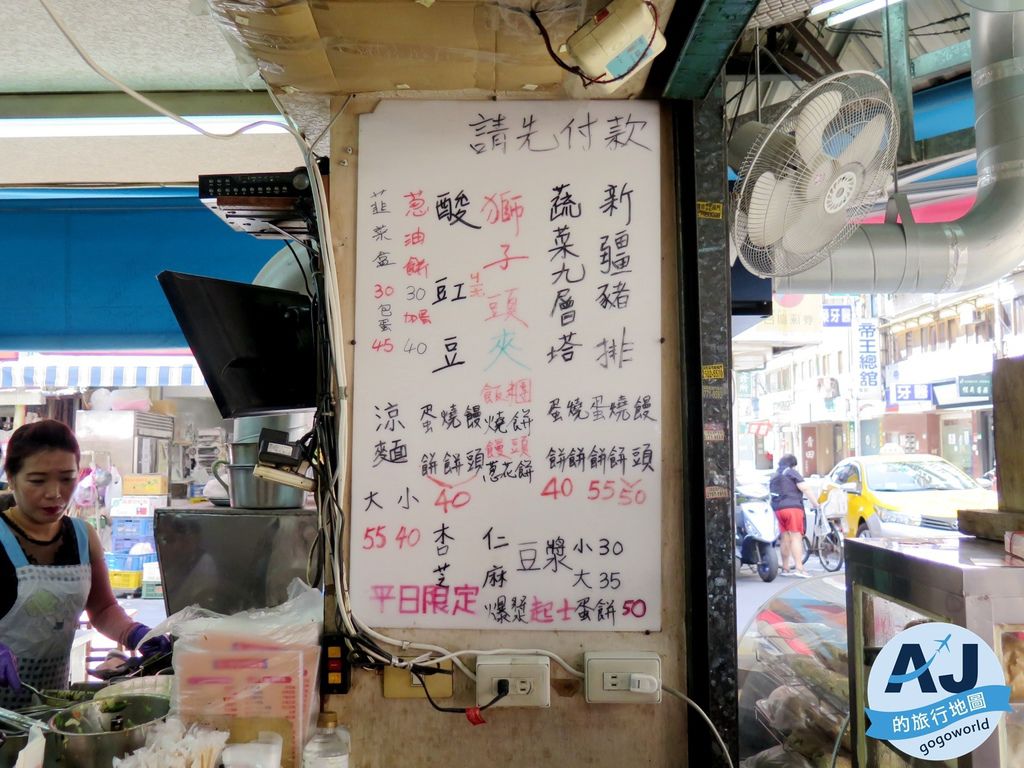 請先付款
新疆豬排
蔬菜九層塔
獅子頭夾
酸豇豆
蔥油餅
30
加蛋
40
韭菜盒
30
包蛋
45
蛋餅 燒餅 蛋餅 燒餅 饅頭
40 55 50
飯糰
燒餅
饅頭
蔥花餅
蛋餅 燒餅 饅頭
40
涼麵
大 小
55 40
杏仁
芝麻
豆漿 小30
大35
平日限定
爆漿起士蛋餅50
帝王總舘
牙醫
AJ
的旅行地圖
gogoworld